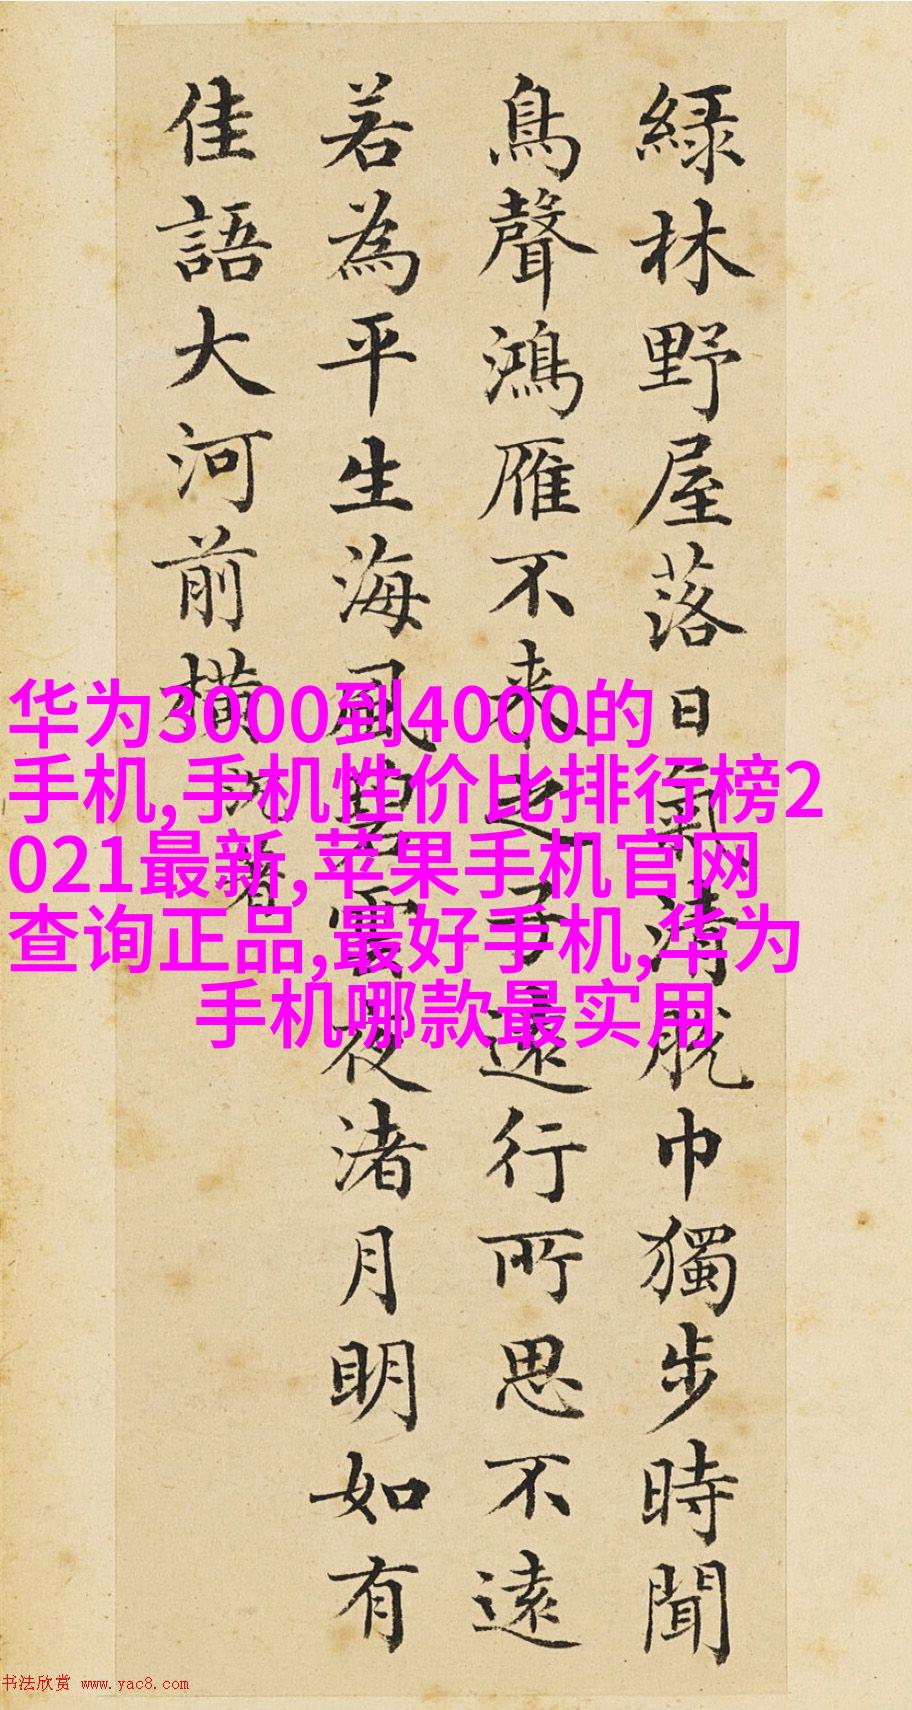 緑林野屋落日氣清脱巾獨步時聞
鳥聲鴻雁不来之子遠行所思不遠
若為平生海風碧雲夜渚月明如有
佳語大河前橫沈著
华为3000到4000的
手机,手机性价比排行榜2
021最新,苹果手机官网
查询正品,最好手机,华为
手机哪款最实用
书法欣赏 www.yac8.com